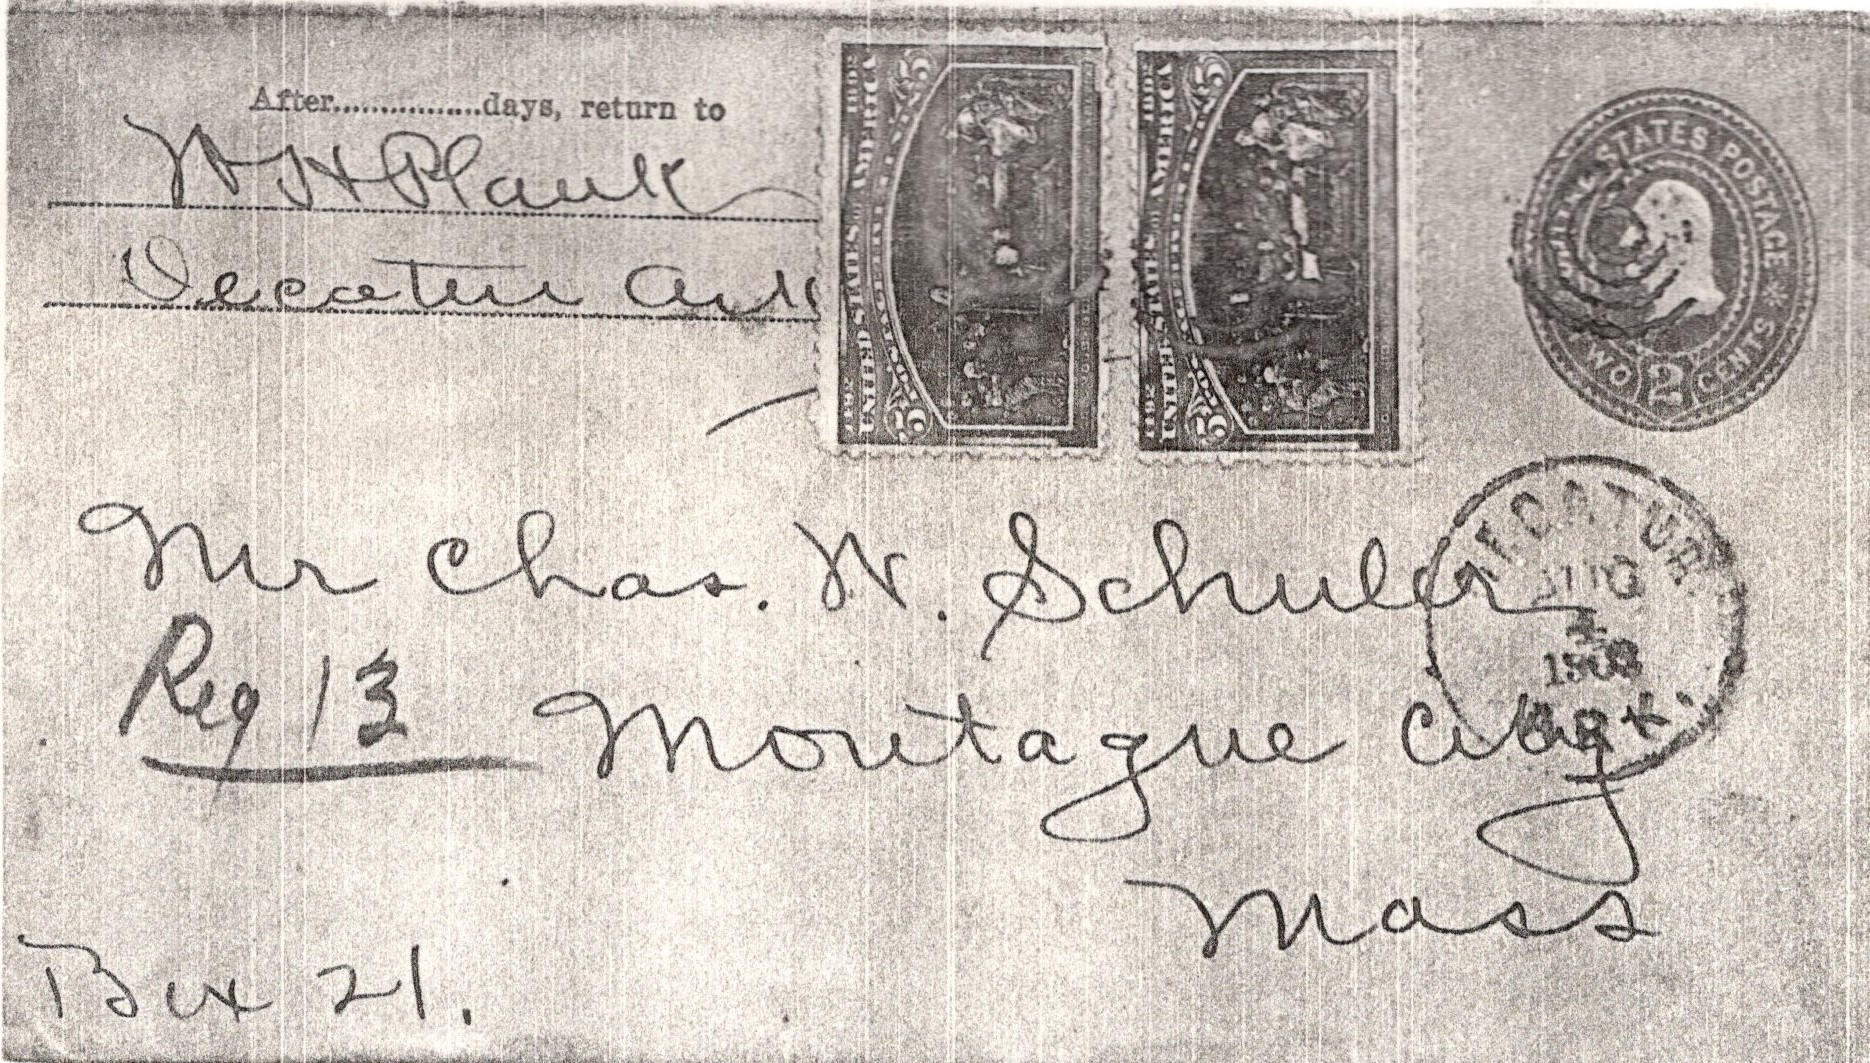 After................days, return to
W H Plank
Decatur Ark
1492 UNITED STATES OF AMERICA 1892
5 5
1492 UNITED STATES OF AMERICA 1892
5 5
UNITED STATES POSTAGE
TWO 2 CENTS
DECATUR
AUG
1903
ARK.
Mr Chas. W. Schuler
Reg 13
Montague City
Mass
Box 21.